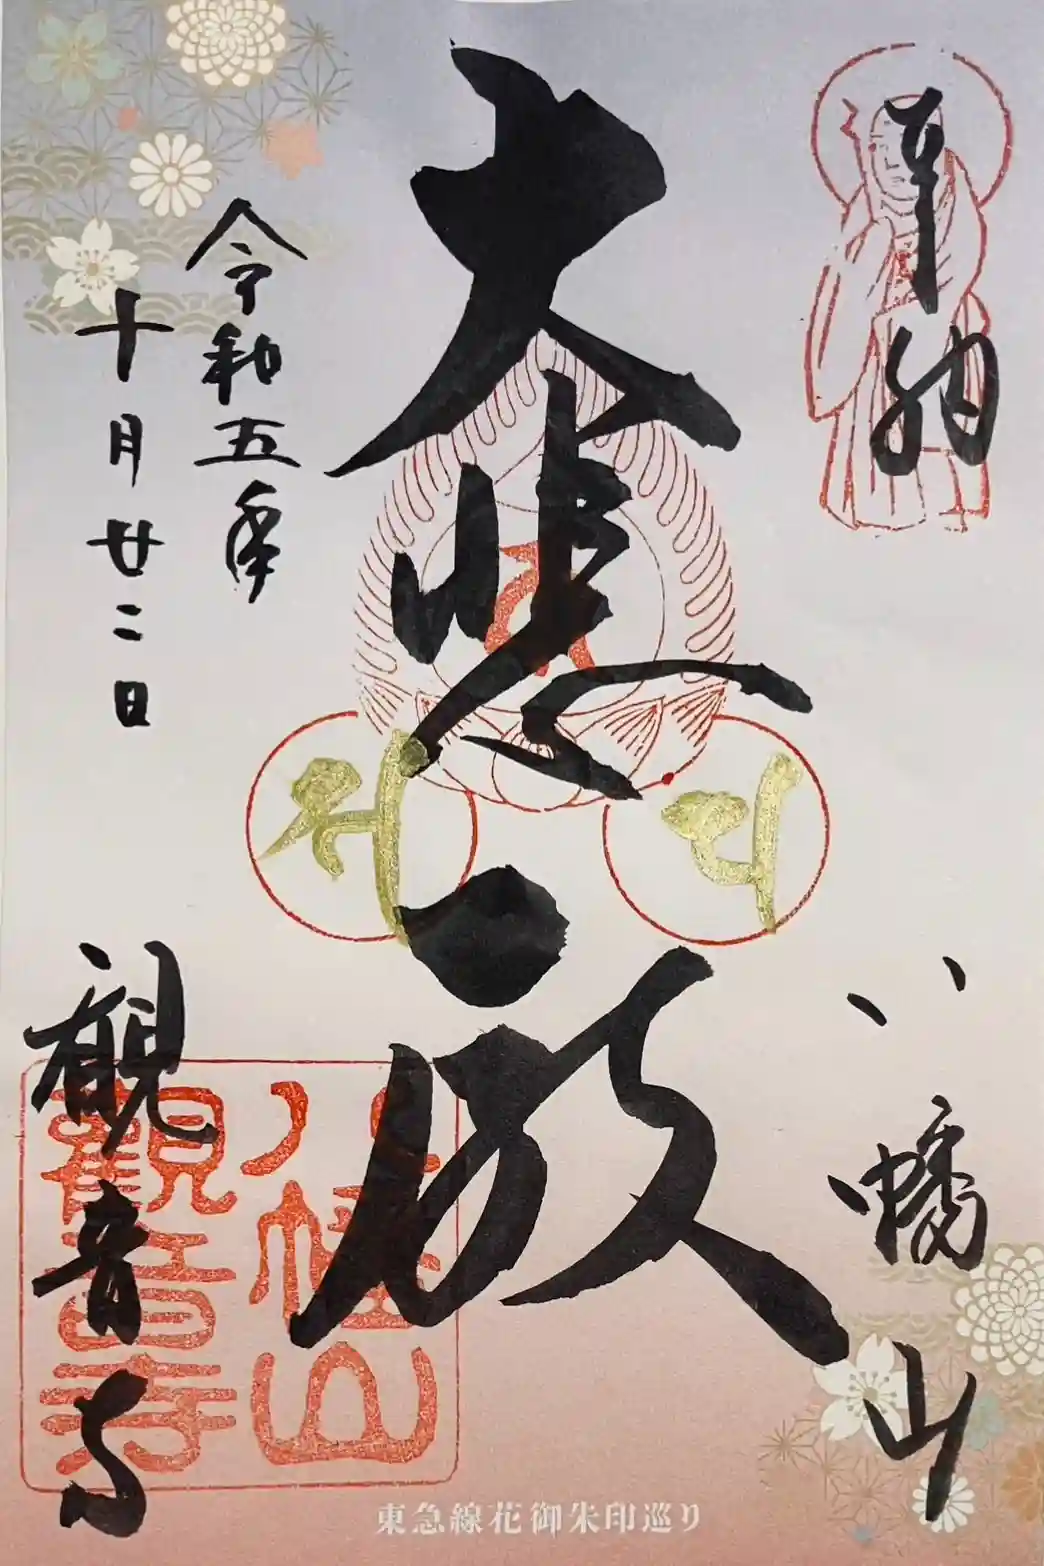 奉納
八幡山
大悲殿
令和五年
十月廿二日
観音寺
八幡山
觀音寺
東急線花御朱印巡り